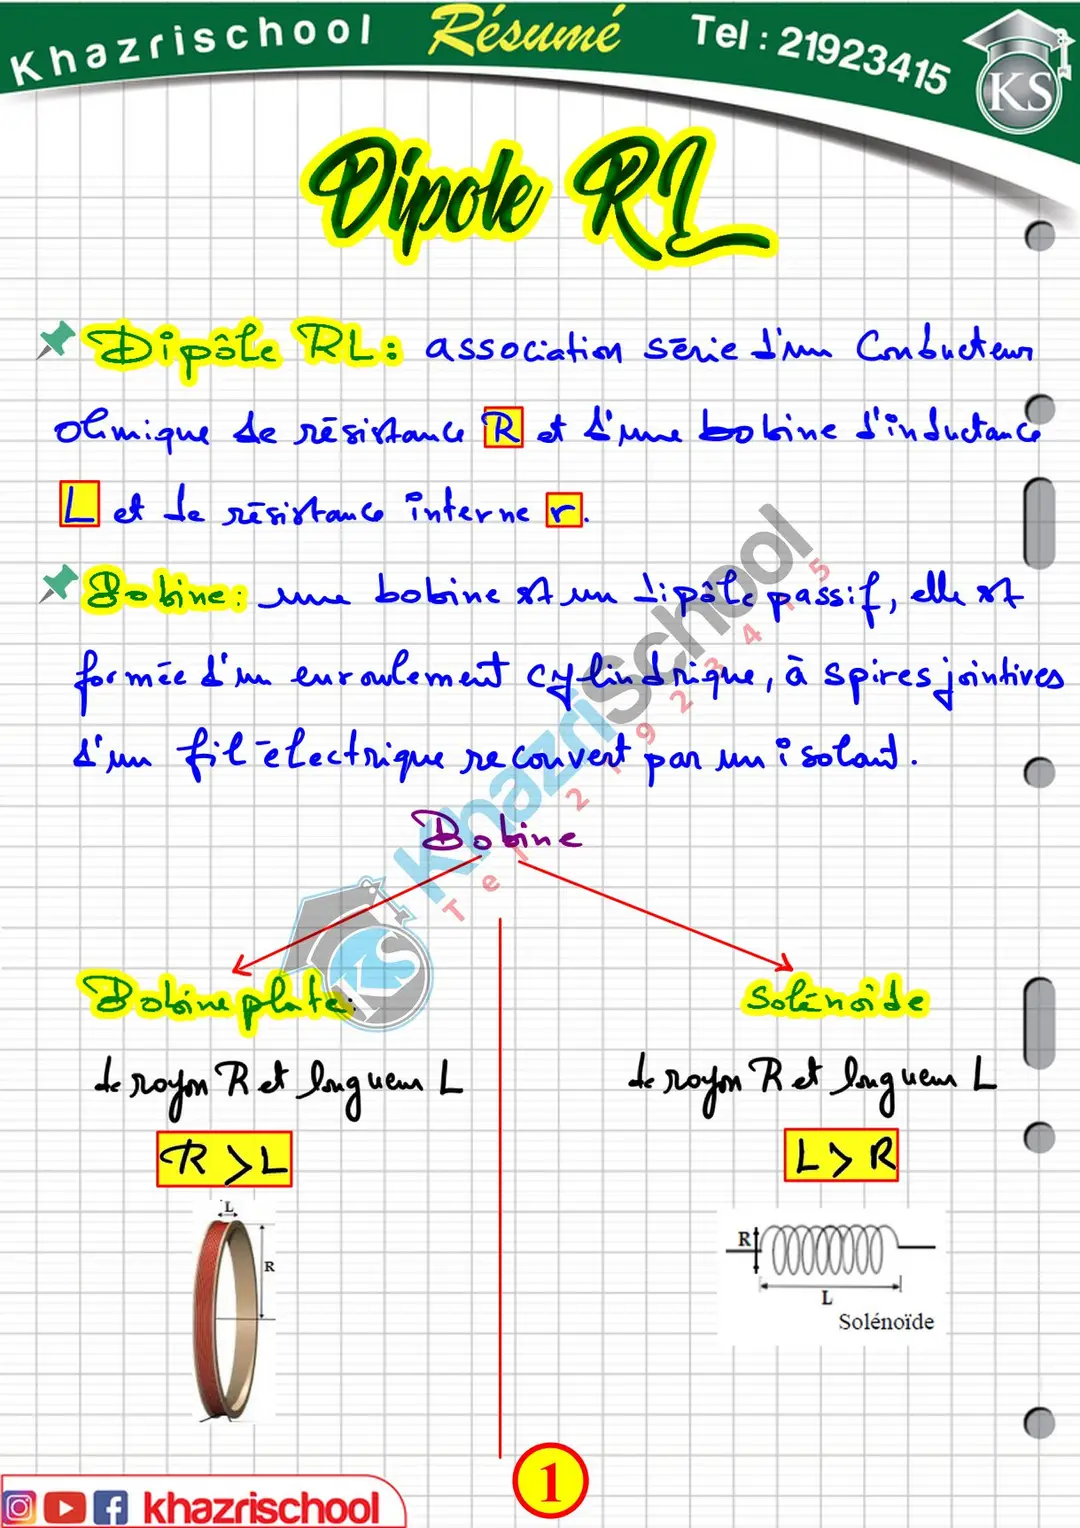 Khazrischool Résumé Tel : 21923415
KS
Dipole RL
Dipôle RL: association série d'un Conducteur
ohmique de résistance R et d'une bobine d'inductance
L et de résistance interne r.
Bobine: une bobine est un dipôle passif, elle est
formée d'un enroulement cylindrique, à spires jointives
d'un fil électrique recouvert par un isolant.
KhazriSchool
Tel 21923415
KS
Bobine
Bobine plate:
de rayon R et longueur L
R > L
L
R
Solénoïde
de rayon R et longueur L
L > R
R
L
Solénoïde
1
khazrischool